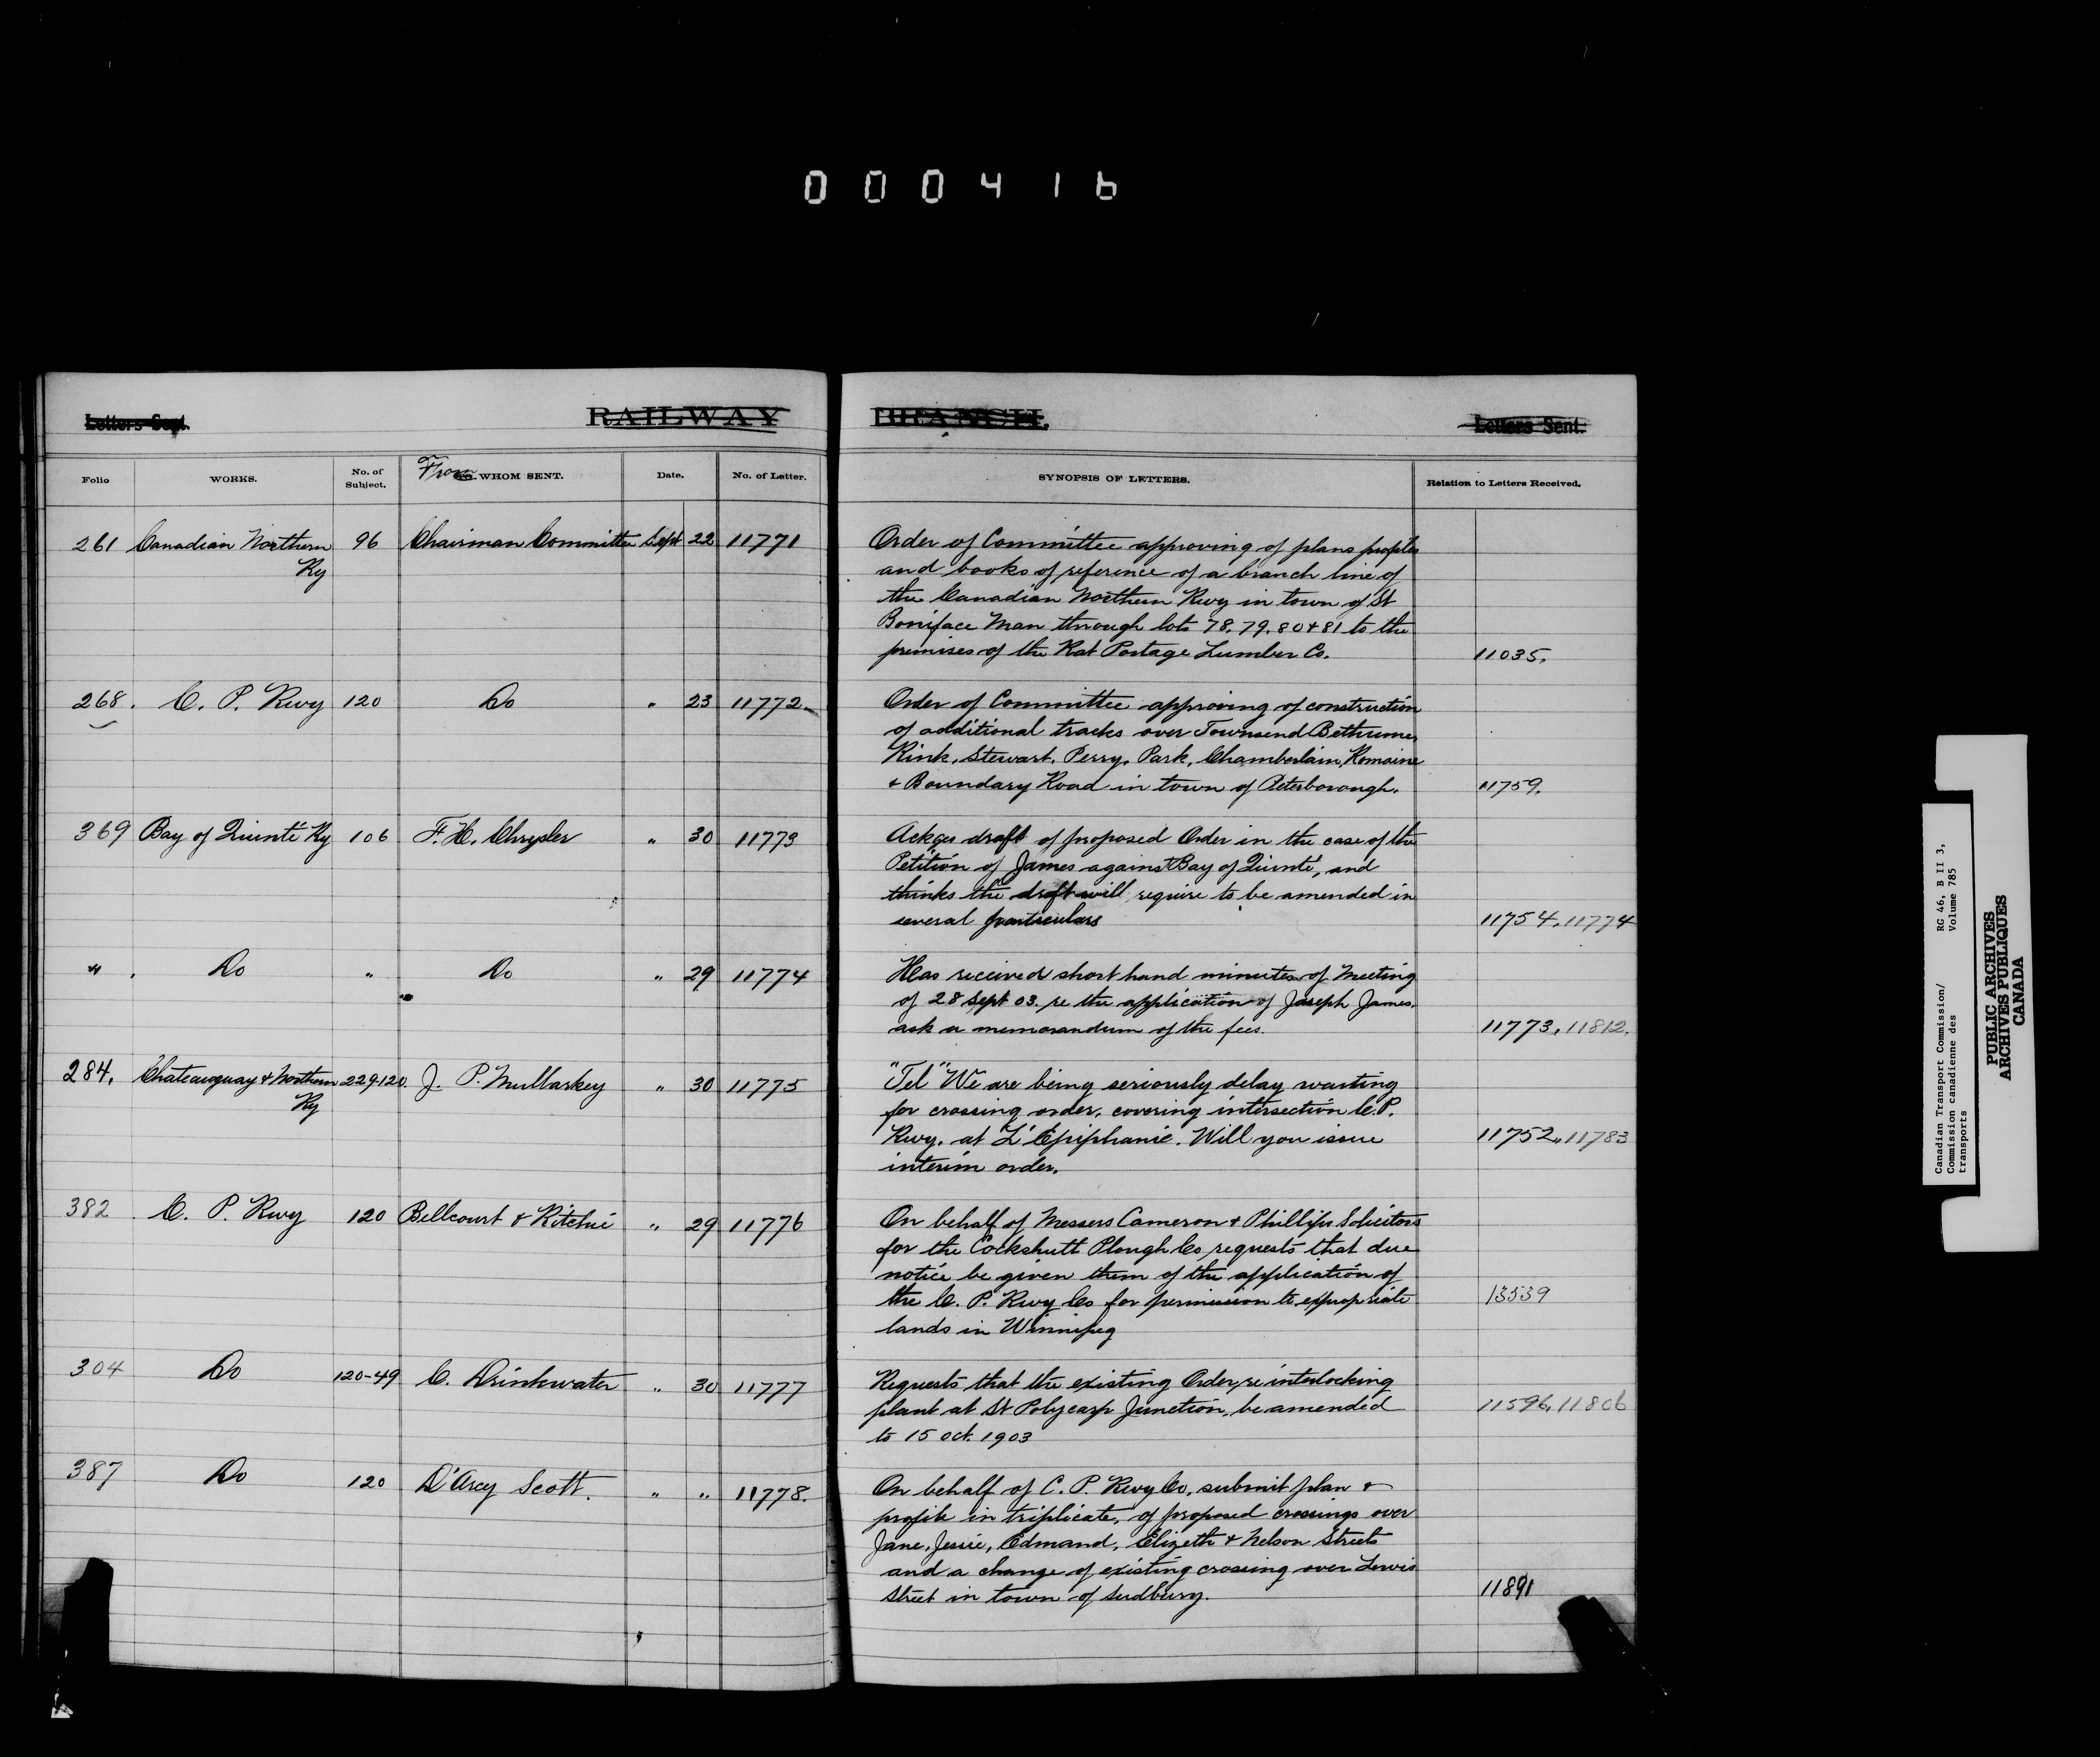 000416
Letters Sent.
RAILWAY
BRANCH.
Letters Sent.
Folio
WORKS.
No. of Subject.
From WHOM SENT.
Date.
No. of Letter.
SYNOPSIS OF LETTERS.
Relation to Letters Received.
261 Canadian Northern 96 Chairman Committee Sept 22 11771
Ry
Order of Committee approving of plans profiles
and books of reference of a branch line of
the Canadian Northern Rwy in town of St
Boniface Man through lots 78, 79, 80 & 81 to the
premises of the Rat Portage Lumber Co. 11035.
268. C. P. Rwy 120 Do " 23 11772
Order of Committee approving of construction
of additional tracks over Townsend Bethume,
Rink, Stewart, Perry, Park, Chamberlain, Romaine
& Boundary Road in town of Peterborough. 11759.
369 Bay of Quinté Ry 106 F. H. Chrysler " 30 11773
Ackges draft of proposed Order in the case of the
Petition of James against Bay of Quinté, and
thinks the draft will require to be amended in
several particulars 11754, 11774
" . Do " Do " 29 11774
Has received short hand minutes of Meeting
of 28 Sept 03. re the application of Joseph James.
ask a memorandum of the fees. 11773, 11812.
284. Chateauguay & Northern 229-120 J. P. Mullarkey " 30 11775
Ry
"Tel" We are being seriously delay waiting
for crossing order, covering intersection C. P.
Rwy. at L'Epiphanie. Will you issue 11752, 11783
interim order.
382 C. P. Rwy 120 Bellcourt & Ritchie " 29 11776
On behalf of Messers Cameron & Phillips Solicitors
for the Cockshutt Plough Co requests that due
notice be given them of the application of
the C. P. Rwy Co for permission to expropriate 13539
lands in Winnipeg
304 Do 120-49 C. Drinkwater " 30 11777
Requests that the existing Order, re interlocking
plant at St Polycarp Junction, be amended 11596, 11806
to 15 Oct. 1903
387 Do 120 D'Arcy Scott. " " 11778.
On behalf of C. P. Rwy Co, submit plan &
profile in triplicate, of proposed crossings over
Jane, Jessie, Edmand, Elizeth & Nelson Streets
and a change of existing crossing over Lewis
Street in town of Sudbury. 11891
Canadian Transport Commission/ RG 46, B II 3,
Commission canadienne des Volume 785
transports
PUBLIC ARCHIVES
ARCHIVES PUBLIQUES
CANADA